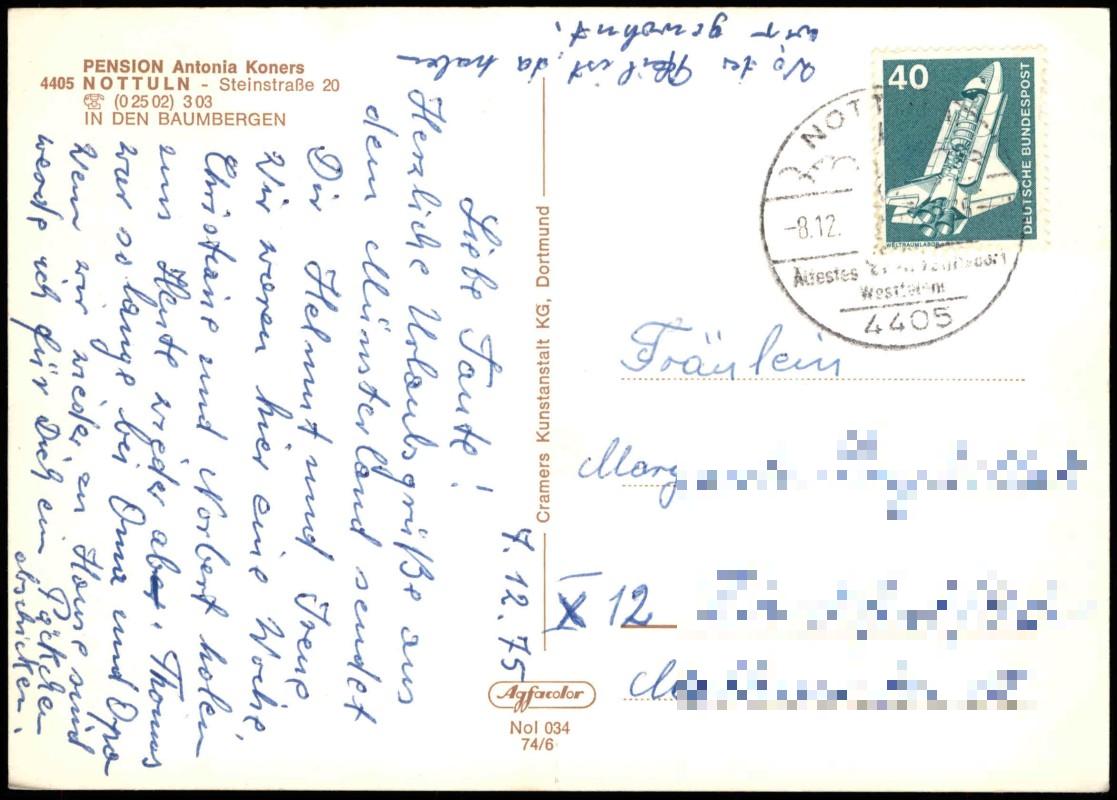 PENSION Antonia Koners
4405 NOTTULN - Steinstraße 20
☏ (0 25 02) 3 03
IN DEN BAUMBERGEN
7.12.75
Liebe Tante!
Herzliche Urlaubsgrüße aus
dem Münsterland sendet
Dir Helmut und Irene
Wir waren hier eine Woche,
Christiane und Norbert holen
uns Heute wieder ab. Thomas
war so lange bei Oma und Opa
Wenn wir wieder zu Hause sind
werde ich für Dich ein Päckchen
abschicken.
Wo der Pfeil ist, da haben
wir gewohnt.
Cramers Kunstanstalt KG, Dortmund
Agfacolor
Nol 034
74/6
40
DEUTSCHE BUNDESPOST
WELTRAUMLABOR
NOT
-8.12.
Ältestes
Westfalens
4405
Fräulein
X 12